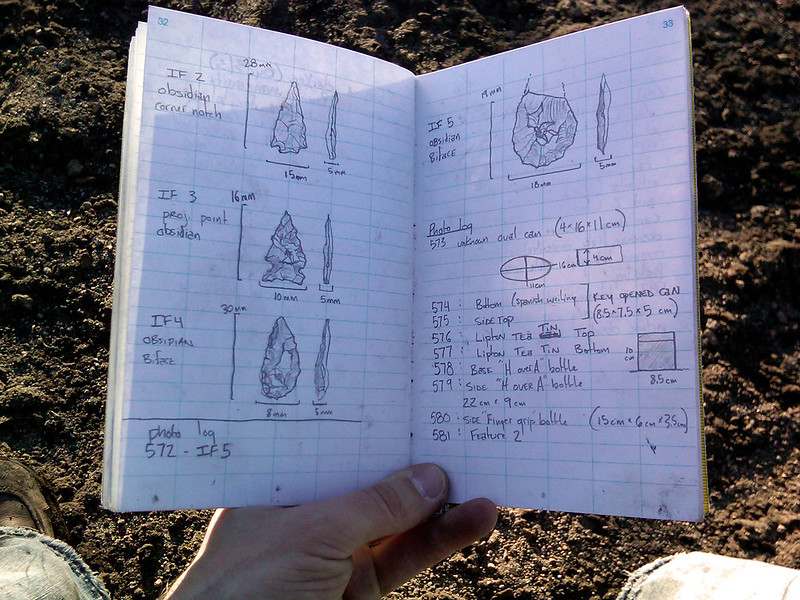 32
28mm
IF 2
obsidian
corner notch
15mm
5mm
IF 3
proj point
obsidian
16mm
10mm
5mm
IF4
OBSIDIAN
Biface
30mm
8mm
5mm
photo log
572 - IF5
33
19mm
IF 5
OBSIDIAN
Biface
18mm
5mm
Photo log
573 unknown oval can (4×16×11cm)
16cm
4cm
11cm
574 : Bottom (spanish writing
575 : SIDE TOP
KEY OPENED CAN
(8.5×7.5×5 cm)
576 : Lipton TEA TIN Top
577 : Lipton TEA TIN Bottom
578 : Base "H over A" bottle
579 : SIDE "H OVER A" bottle
22cm × 9cm
10 cm
8.5cm
580 : SIDE "Finger grip" bottle (15cm × 6cm × 3.5cm)
581 : Feature 2